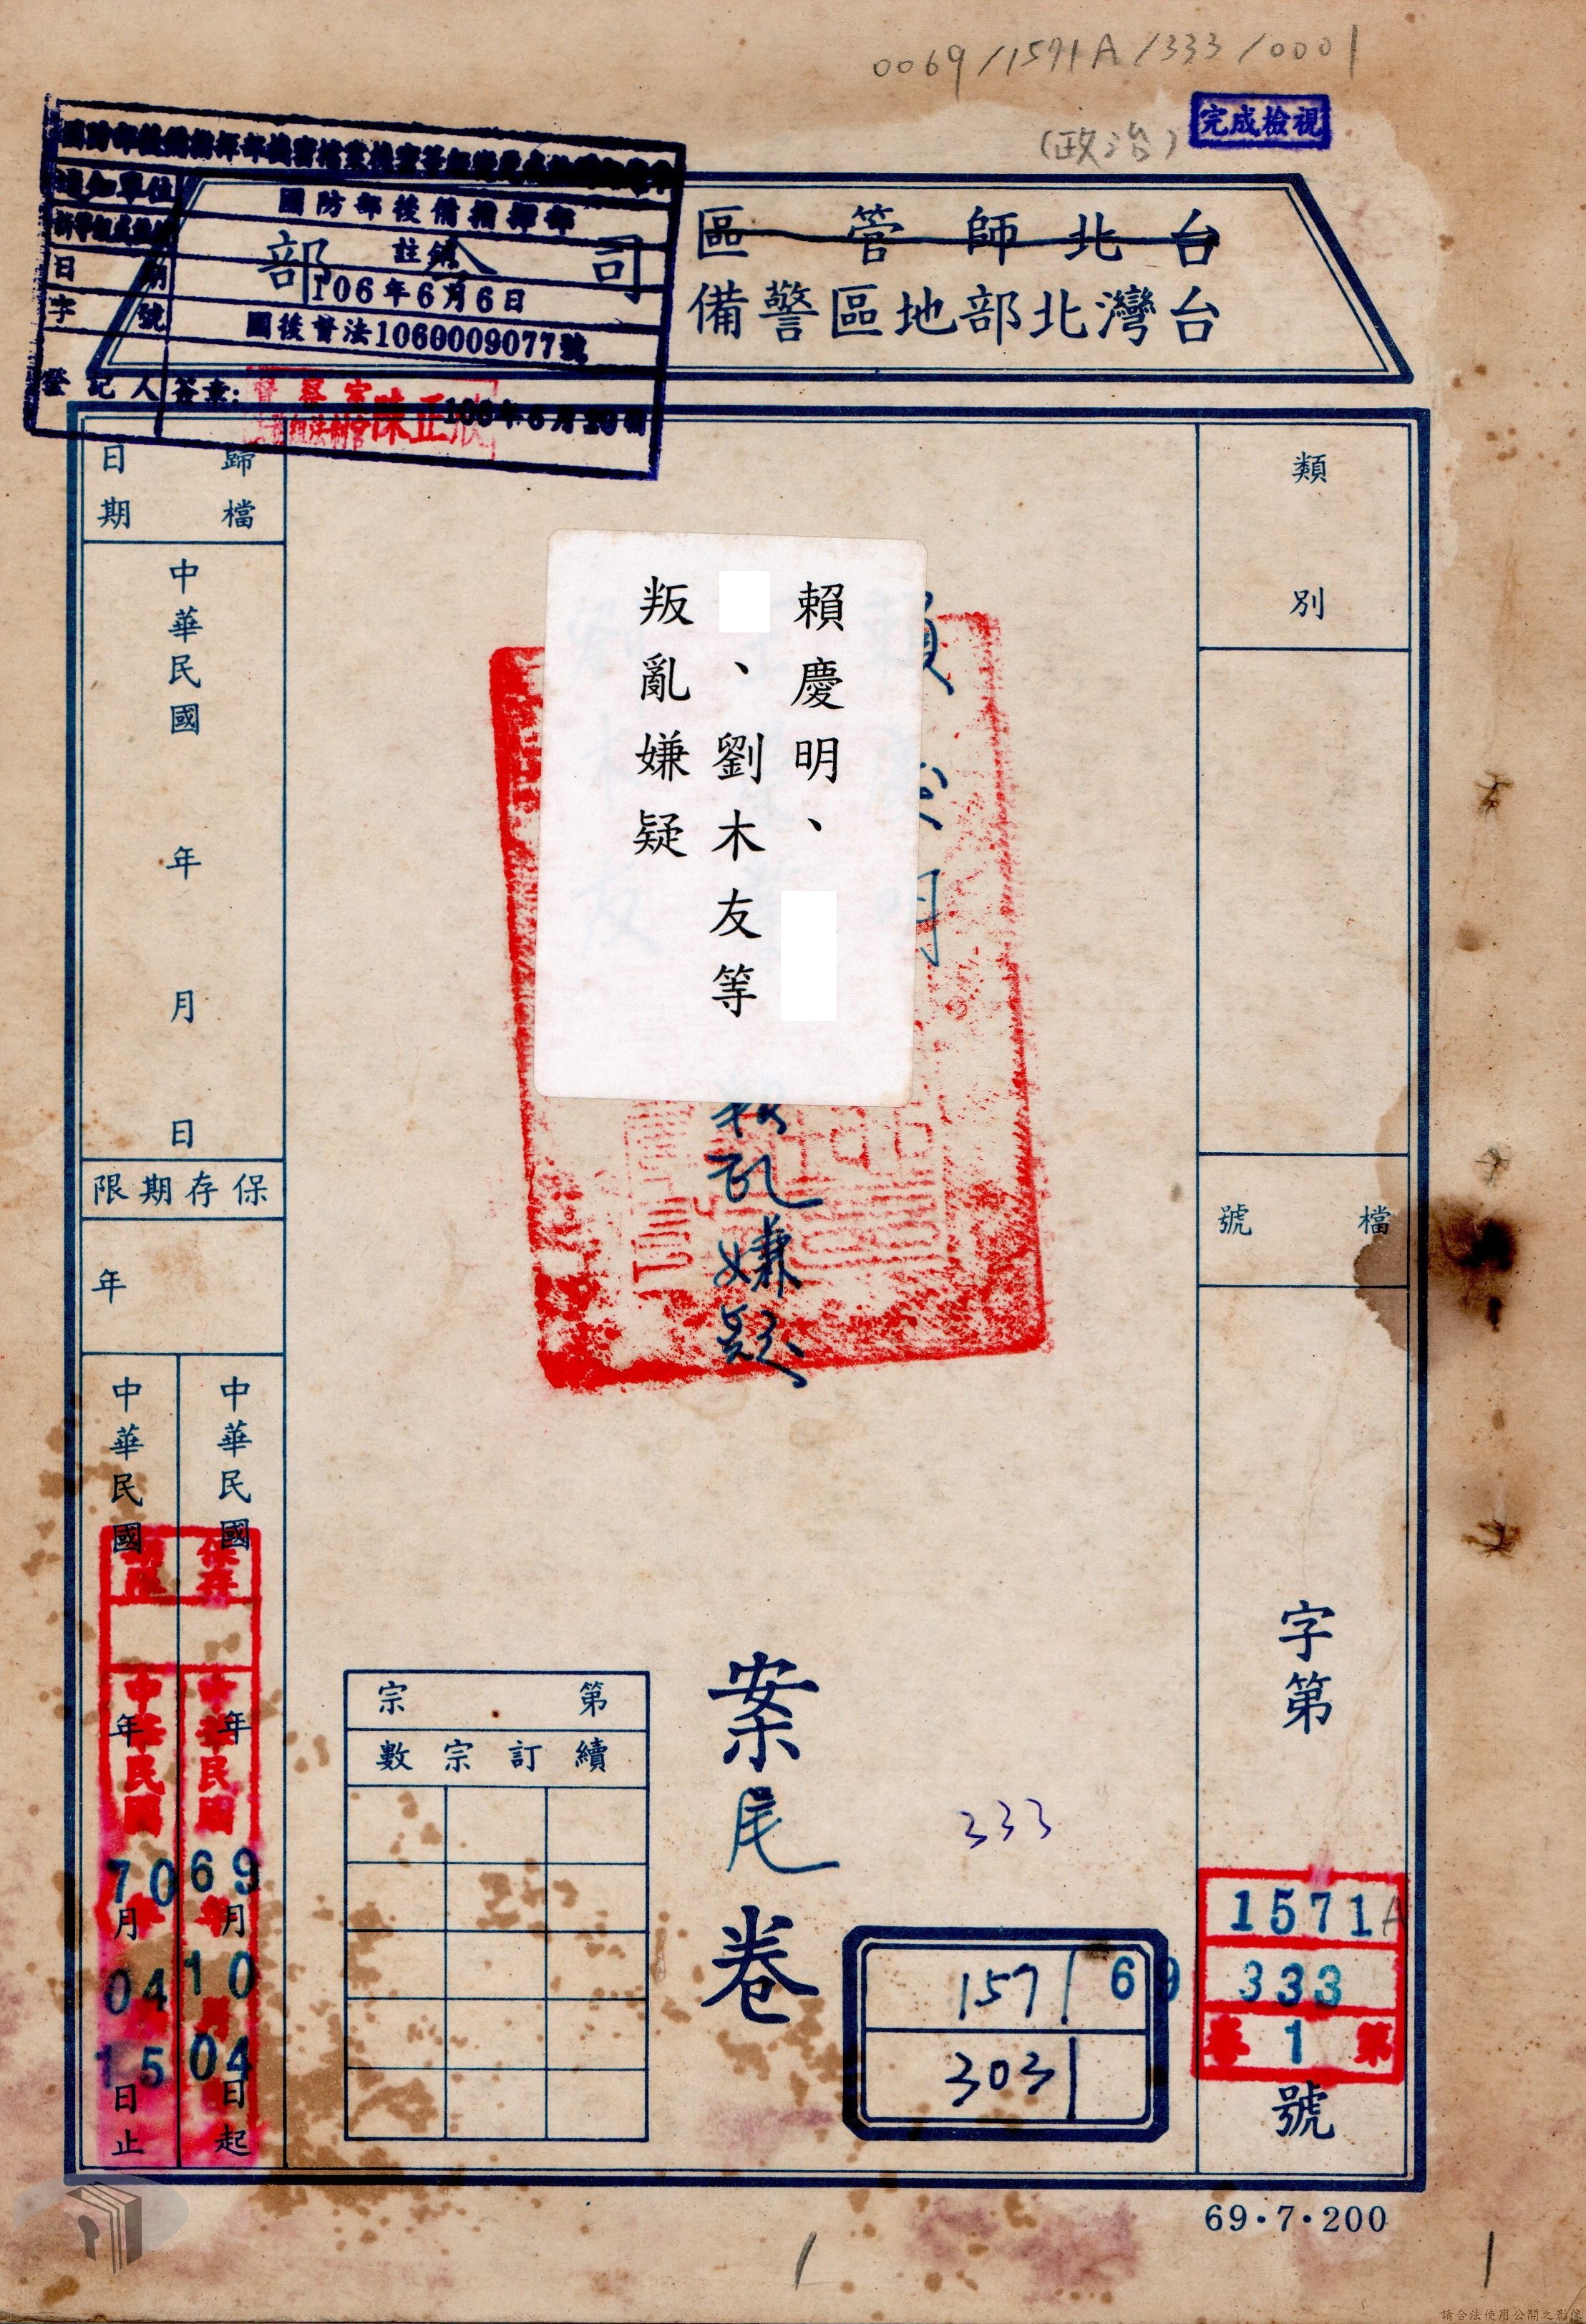 0069/1571A/333/0001
(政治)
完成檢視
通知單位
國防部後備指揮部
註銷
日期
106年6月6日
字號
國後督法1060009077號
登記人簽章:
陳正欣
台北師管區
台灣北部地區警備
司令部
類別
檔號
字第
1571A
333
第1卷
號
賴慶明、
、劉木友等
叛亂嫌疑
賴慶明
叛乱嫌疑
案尾卷
333
157 69
303
第宗
續訂宗數
歸檔日期
中華民國 年 月 日
保存期限
年
中華民國 年 月 日起
中華民國 年 月 日止
保存期限
中華民國
69年10月04
中華民國
70年04月15
69·7·200
1
1
請合法使用公開之影像